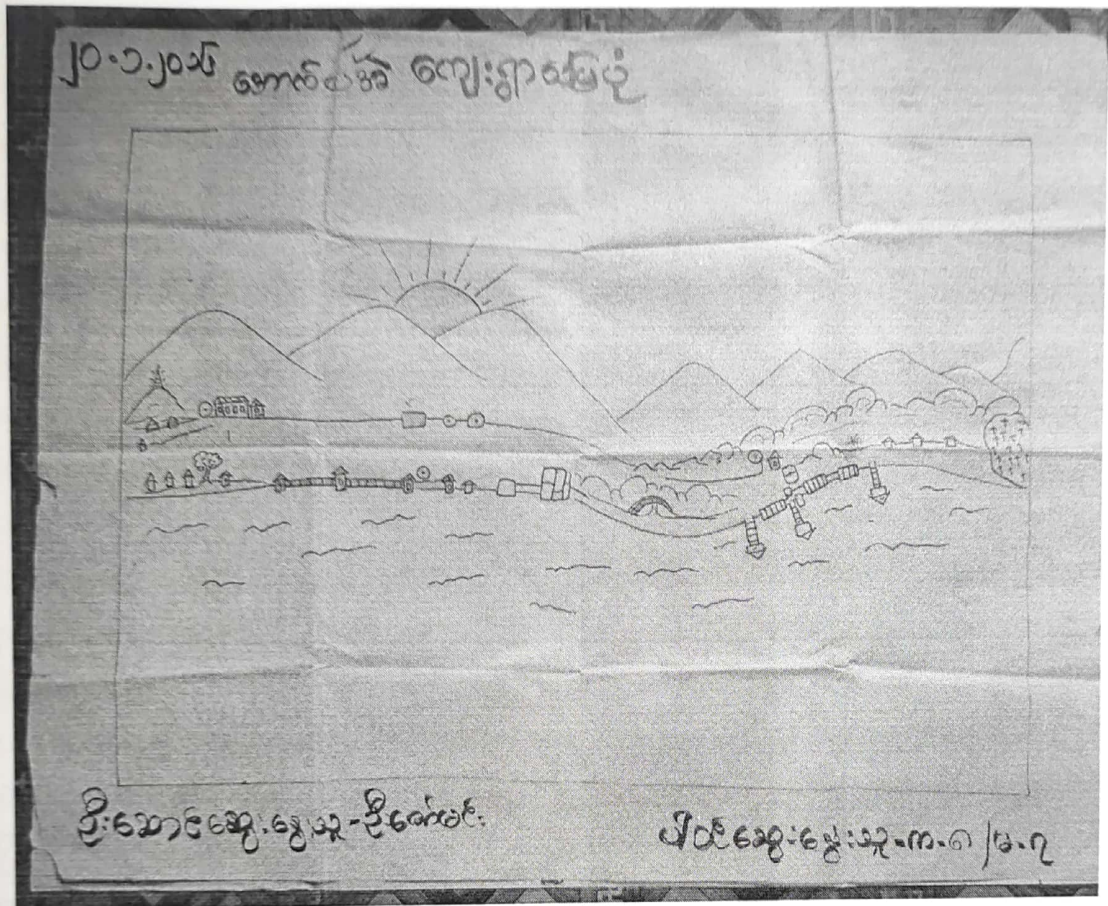 ၂၀.၁.၂၀၁၆ အောက် ကျေးရွာမြေပုံ
ဦးဆောင်ဆွေးနွေးသူ - ဦးဇော်မင်း
ပါဝင်ဆွေးနွေးသူ - က - ၈ / မ - ၇